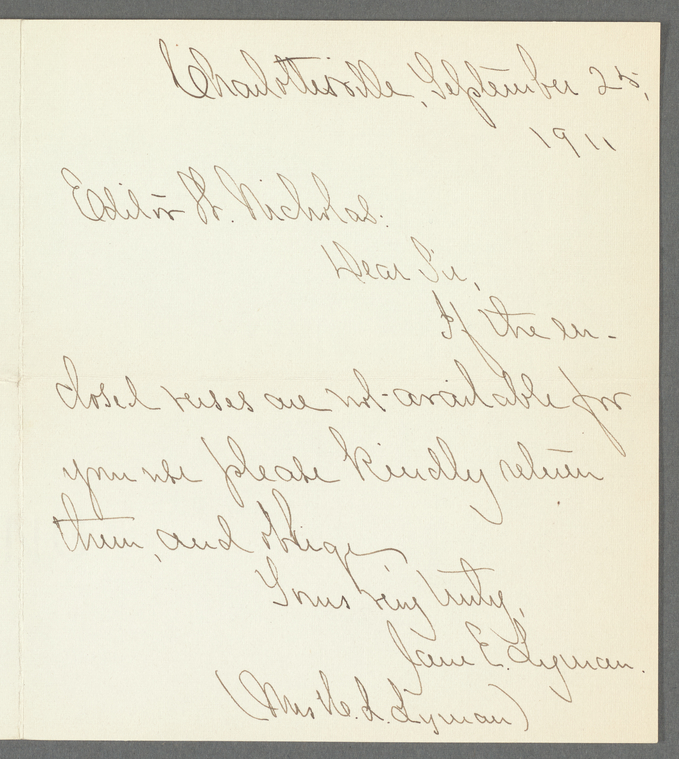 Charlottesville, September 25,
1911
Editor St. Nicholas:
Dear Sir,
If the en-
closed verses are not available for
your use please kindly return
them, and oblige
Yours very truly,
Jane E. Lyman.
(Mrs H. L. Lyman)